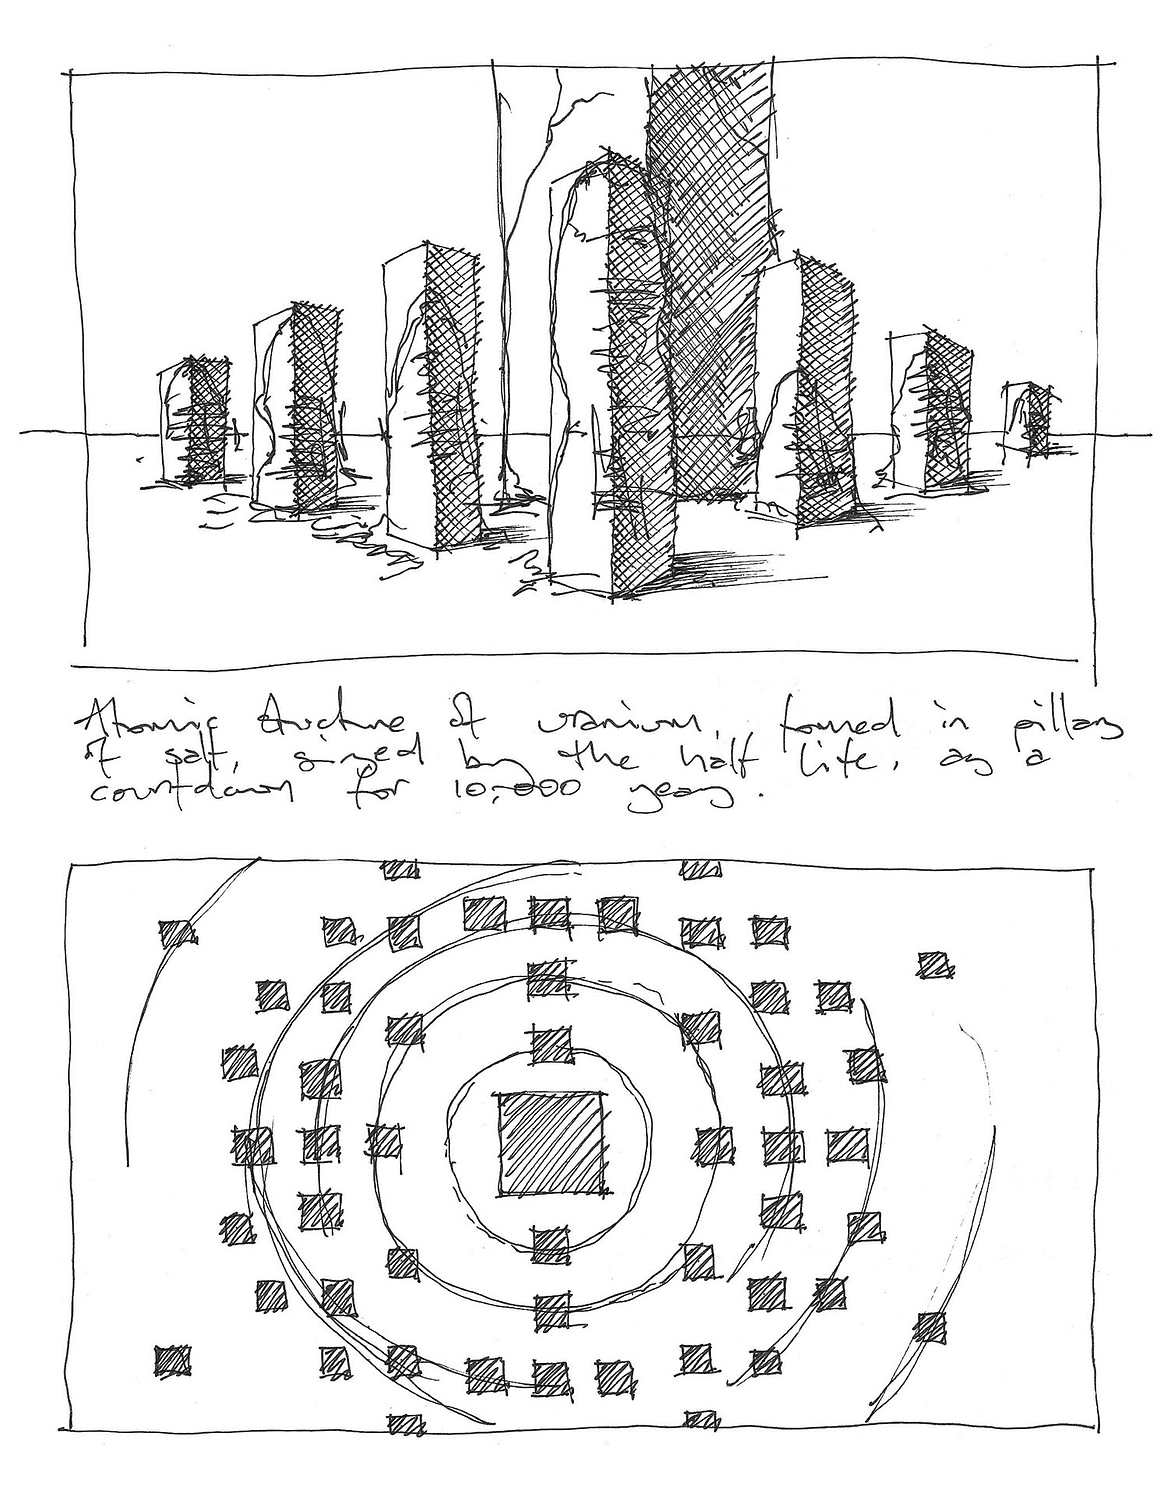 Atomic structure of uranium, formed in pillars
of salt, sized by the half life, as a
countdown for 10,000 years.